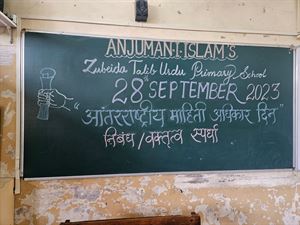 ANJUMAN-I-ISLAM'S
Zubeida Talib Urdu Primary School
28 SEPTEMBER 2023
"आंतरराष्ट्रीय माहिती अधिकार दिन"
निबंध/वक्तृत्व स्पर्धा